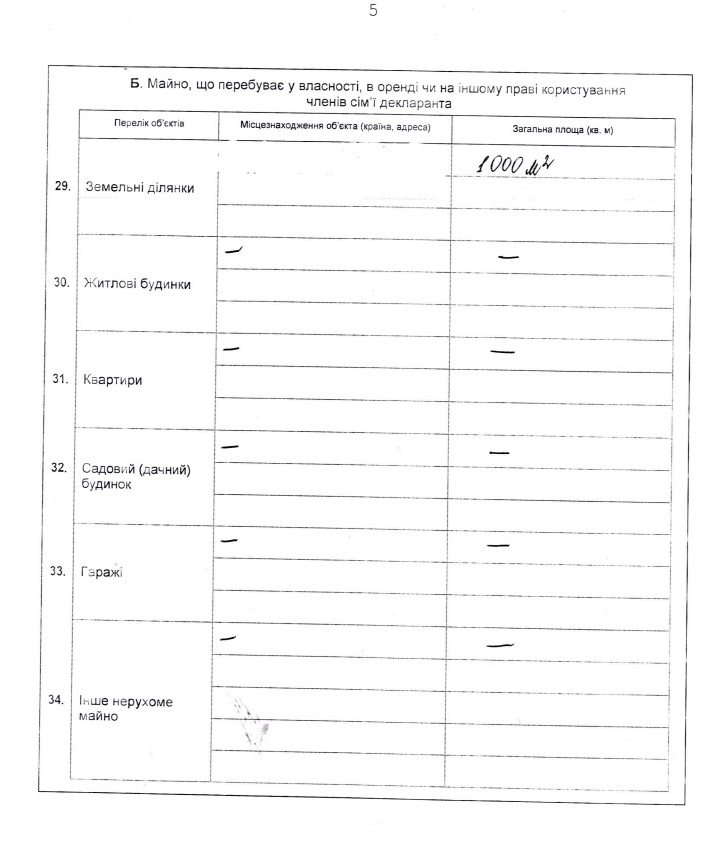 5
Б. Майно, що перебуває у власності, в оренді чи на іншому праві користування
членів сім'ї декларанта
Перелік об'єктів Місцезнаходження об'єкта (країна, адреса) Загальна площа (кв. м)
29. Земельні ділянки 1000 м²
30. Житлові будинки — —
31. Квартири — —
32. Садовий (дачний)
будинок — —
33. Гаражі — —
34. Інше нерухоме
майно — —